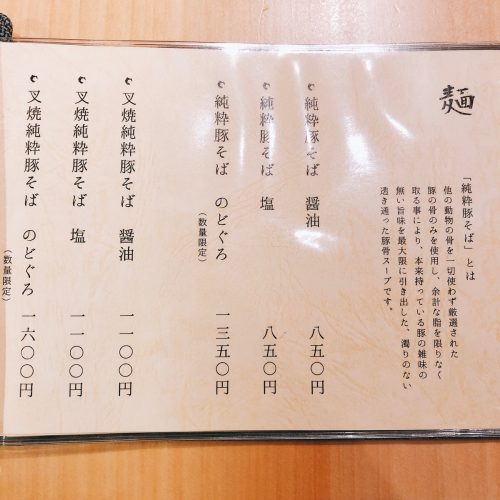 麺
「純粋豚そば」とは
他の動物の骨を一切使わず厳選された
豚の骨のみを使用し、余計な脂を限りなく
取る事により、本来持っている豚の雑味の
無い旨味を最大限に引き出した、濁りのない
透き通った豚骨スープです。
純粋豚そば 醤油 八五〇円
純粋豚そば 塩 八五〇円
純粋豚そば のどぐろ 一三五〇円
（数量限定）
叉焼純粋豚そば 醤油 一一〇〇円
叉焼純粋豚そば 塩 一一〇〇円
叉焼純粋豚そば のどぐろ 一六〇〇円
（数量限定）